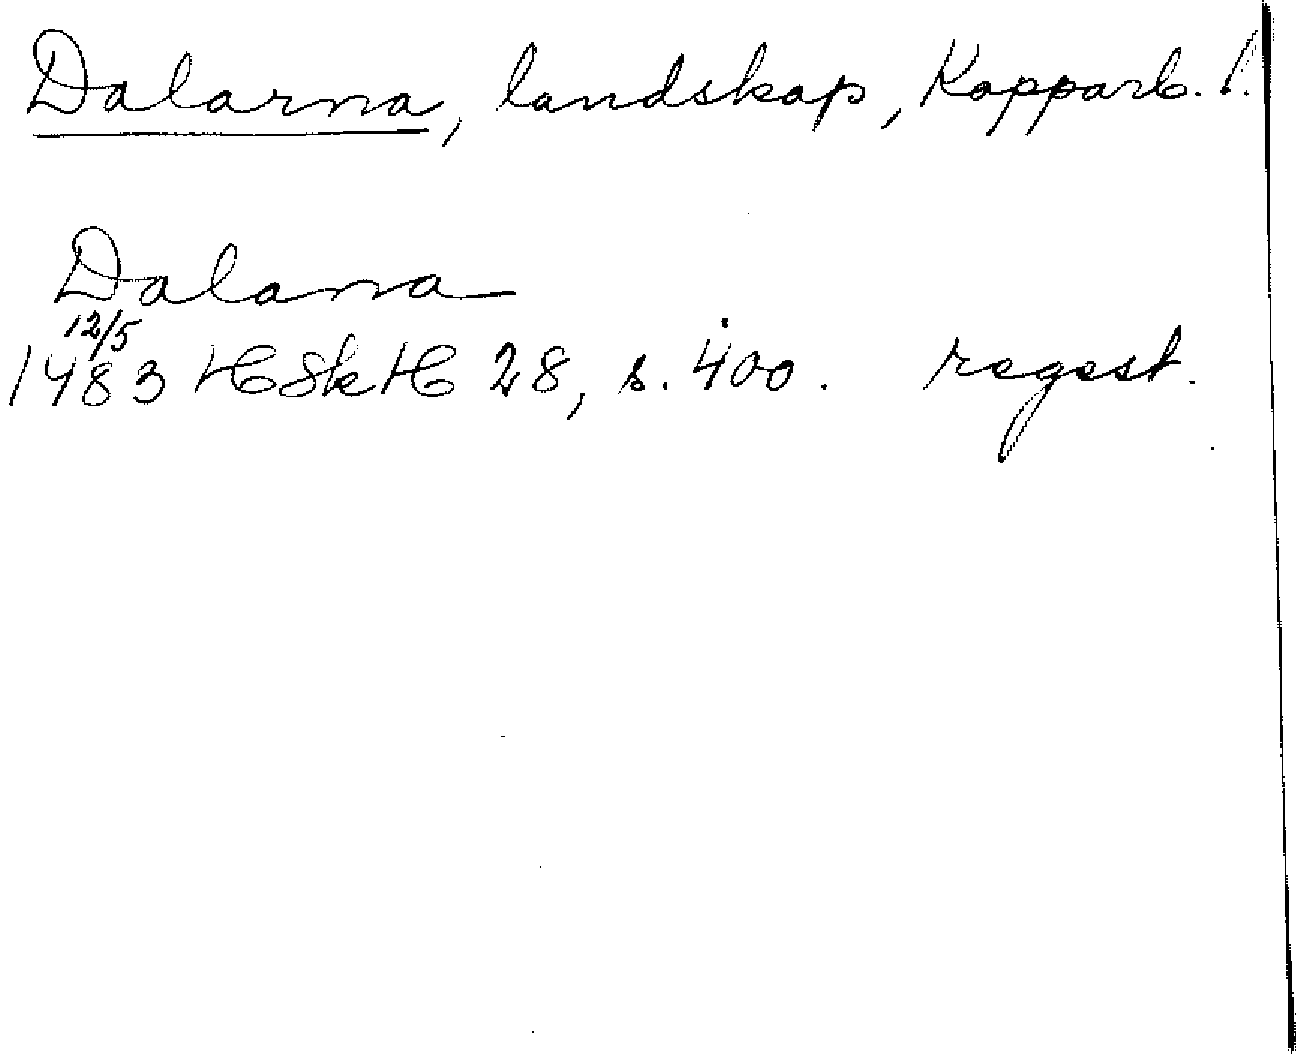 Dalarna, landskap, Kopparb. l.
Dalana
12/5
1483 HSkH 28, s. 400. regest.